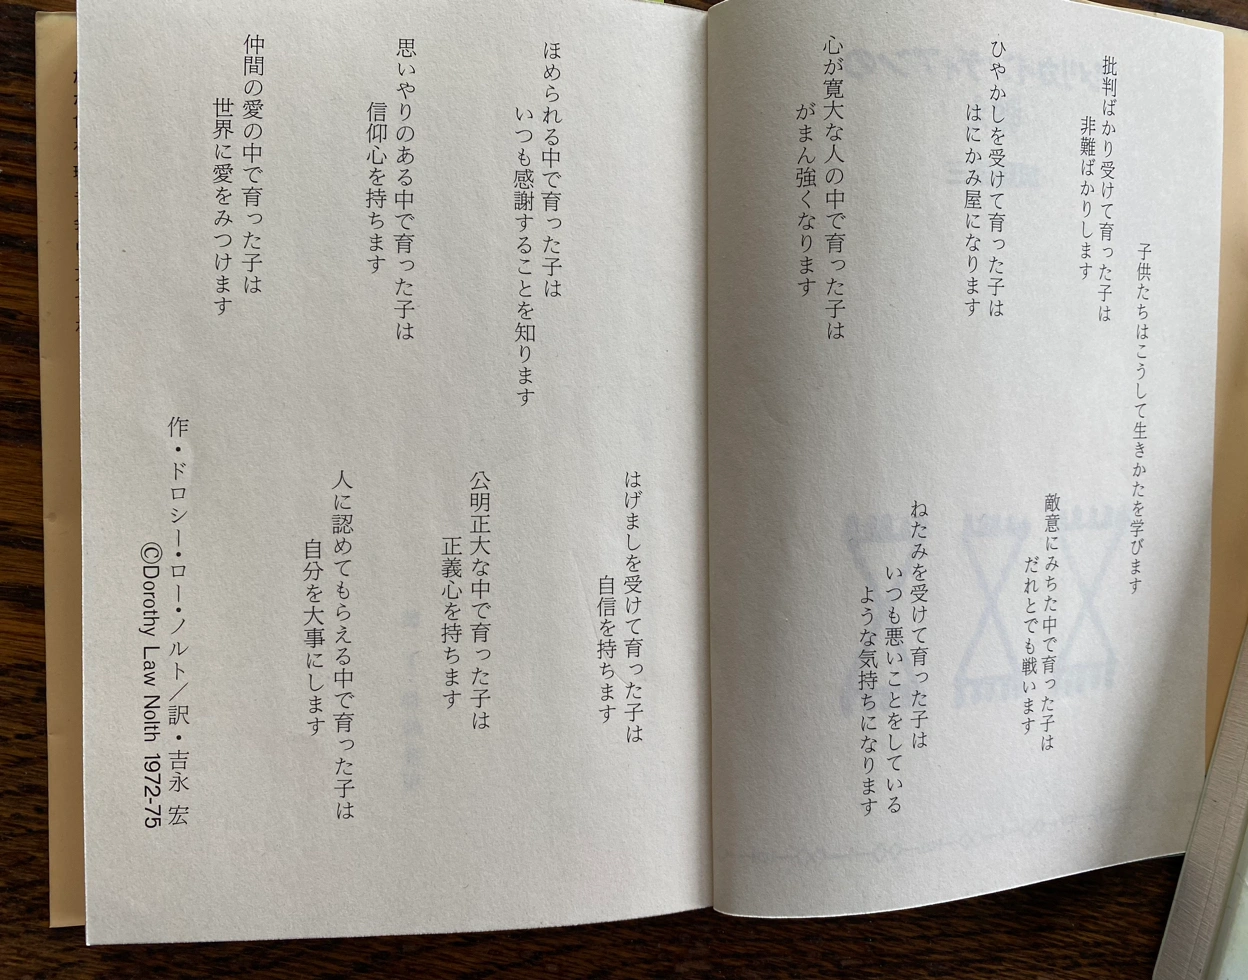 子供たちはこうして生きかたを学びます
批判ばかり受けて育った子は
非難ばかりします
敵意にみちた中で育った子は
だれとでも戦います
ひやかしを受けて育った子は
はにかみ屋になります
ねたみを受けて育った子は
いつも悪いことをしている
ような気持ちになります
心が寛大な人の中で育った子は
がまん強くなります
はげましを受けて育った子は
自信を持ちます
ほめられる中で育った子は
いつも感謝することを知ります
公明正大な中で育った子は
正義心を持ちます
思いやりのある中で育った子は
信仰心を持ちます
人に認めてもらえる中で育った子は
自分を大事にします
仲間の愛の中で育った子は
世界に愛をみつけます
作・ドロシー・ロー・ノルト／訳・吉永 宏
©Dorothy Law Nolth 1972-75